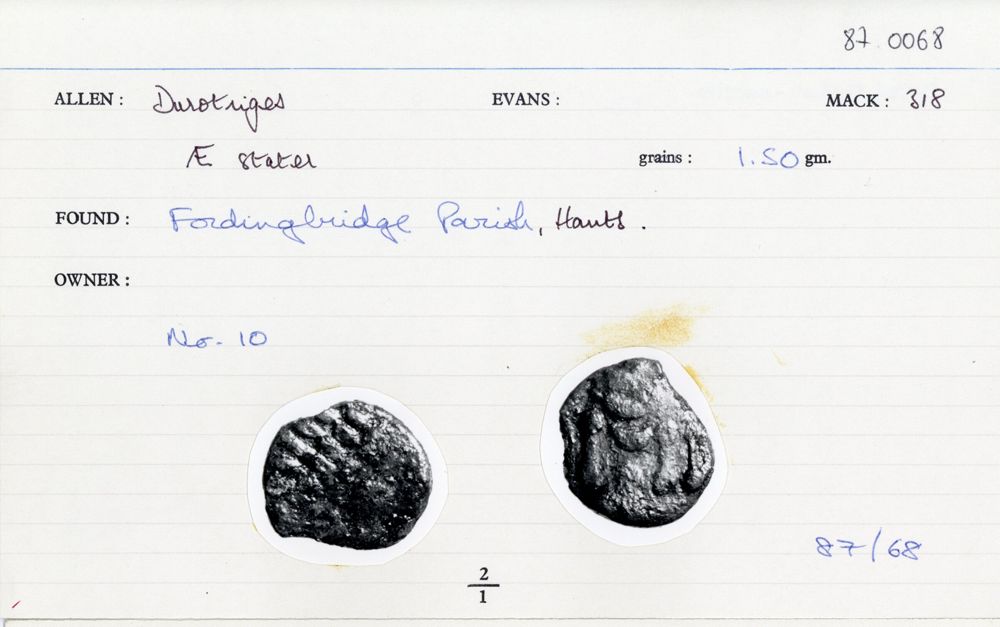 87.0068
ALLEN : Durotriges EVANS : MACK : 318
Æ stater grains : 1.50 gm.
FOUND : Fordingbridge Parish, Hants.
OWNER :
No. 10
87/68
2
1